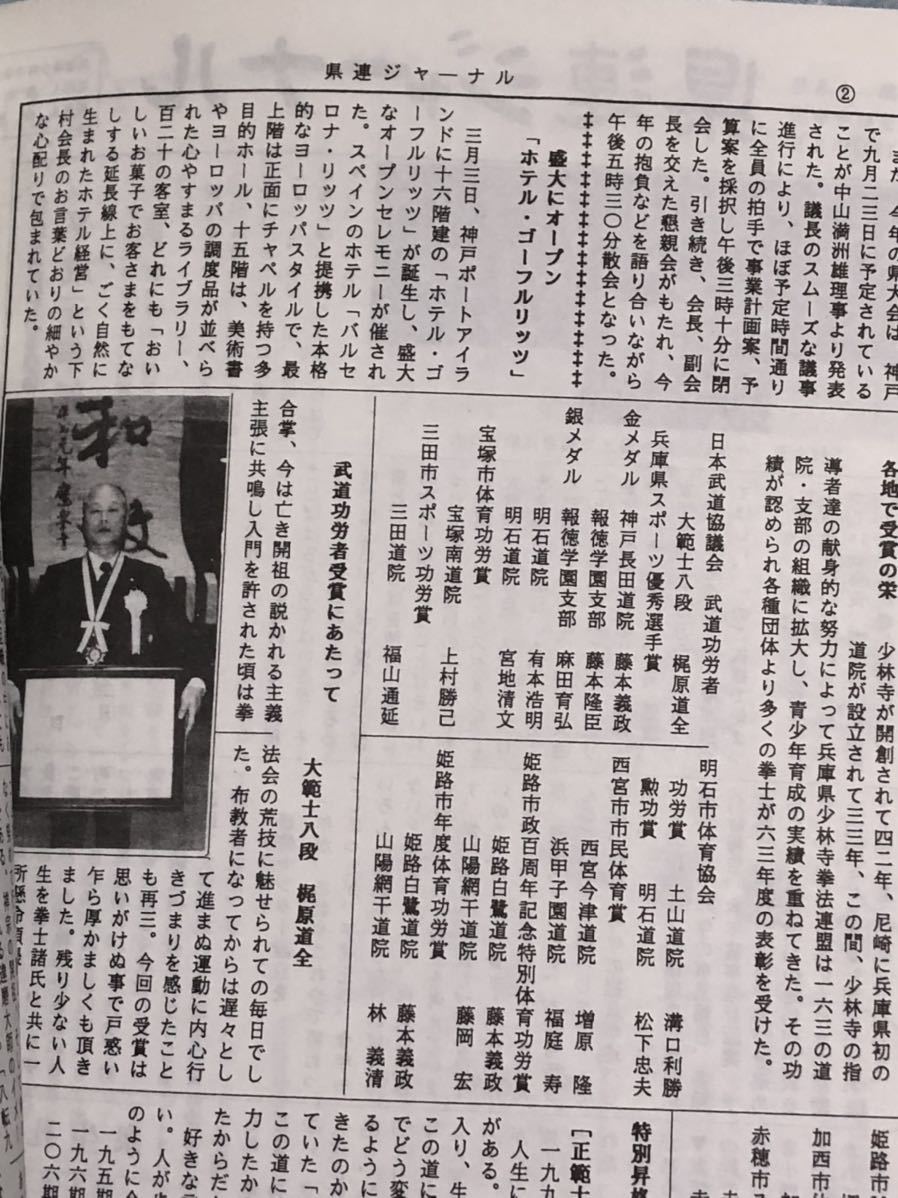 ②
県連ジャーナル
また、今年の県大会は、神戸
で九月二三日に予定されている
ことが中山満洲雄理事より発表
された。議長のスムーズな議事
進行により、ほぼ予定時間通り
に全員の拍手で事業計画案、予
算案を採択し午後三時十分に閉
会した。引き続き、会長、副会
長を交えた懇親会がもたれ、今
年の抱負などを語り合いながら
午後五時三〇分散会となった。
盛大にオープン
「ホテル・ゴーフルリッツ」
三月三日、神戸ポートアイラ
ンドに十六階建の「ホテル・ゴ
ーフルリッツ」が誕生し、盛大
なオープンセレモニーが催され
た。スペインのホテル「バルセ
ロナ・リッツ」と提携した本格
的なヨーロッパスタイルで、最
上階は正面にチャペルを持つ多
目的ホール、十五階は、美術書
やヨーロッパの調度品が並べら
れた心やすまるライブラリー、
百二十の客室、どれにも「おい
しいお菓子でお客さまをもてな
しする延長線上に、ごく自然に
生まれたホテル経営」という下
村会長のお言葉どおりの細やか
な心配りで包まれていた。
各地で受賞の栄
少林寺が開創されて四二年、尼崎に兵庫県初の
道院が設立されて三三年、この間、少林寺の指
導者達の献身的な努力によって兵庫県少林寺拳法連盟は一六三の道
院・支部の組織に拡大し、青少年育成の実績を重ねてきた。その功
績が認められ各種団体より多くの拳士が六三年度の表彰を受けた。
日本武道協議会 武道功労者
大範士八段 梶原道全
兵庫県スポーツ優秀選手賞
金メダル 神戸長田道院 藤本義政
報徳学園支部 藤本隆臣
銀メダル 報徳学園支部 麻田育弘
明石道院 有本浩明
明石道院 宮地清文
宝塚市体育功労賞
宝塚南道院 上村勝己
三田市スポーツ功労賞
三田道院 福山通延
明石市体育協会
功労賞 土山道院 溝口利勝
勲功賞 明石道院 松下忠夫
西宮市市民体育賞
西宮今津道院 増原隆
浜甲子園道院 福庭寿
姫路市政百周年記念特別体育功労賞
姫路白鷺道院 藤本義政
山陽網干道院 藤岡宏
姫路市年度体育功労賞
姫路白鷺道院 藤本義政
山陽網干道院 林義清
武道功労者受賞にあたって
大範士八段 梶原道全
合掌、今は亡き開祖の説かれる主義
主張に共鳴し入門を許された頃は拳
法会の荒技に魅せられての毎日でし
た。布教者になってからは遅々とし
て進まぬ運動に内心行
きづまりを感じたこと
も再三。今回の受賞は
思いがけぬ事で戸惑い
乍ら厚かましくも頂き
ました。残り少ない人
生を拳士諸氏と共に一
和
姫路市
加西市
赤穂市
特別昇格
[正範士
一九九
人生に
がある。
入り、生
この道に
でどう変
るように
きたのか
ていた「
この道に
力したか
たからだ
好きな言
い。人が
のように
一九五期
一九六期
二〇六期